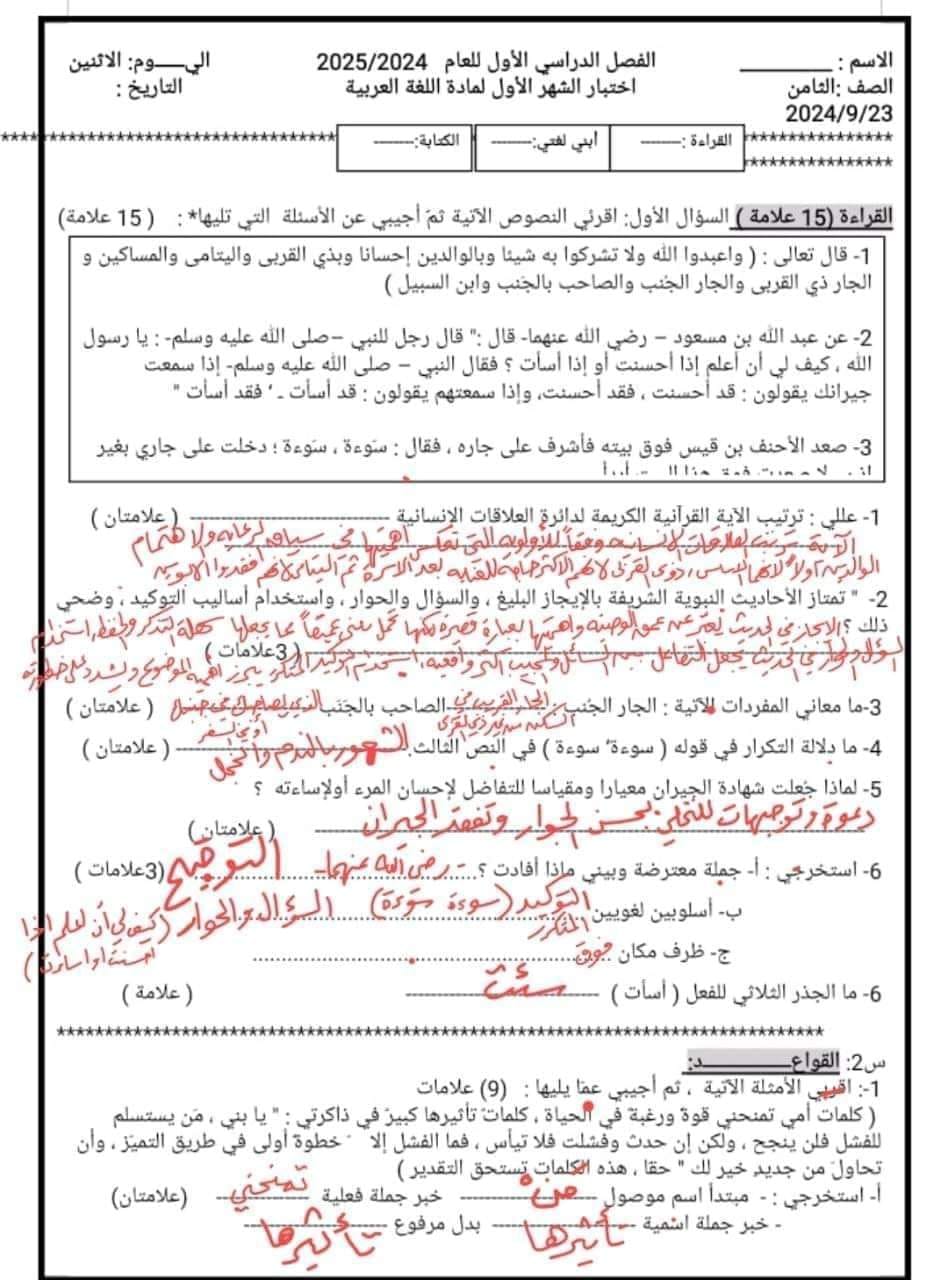 الاسم : ــــــــــــ الفصل الدراسي الأول للعام 2025/2024 اليـــوم: الاثنين
الصف :الثامن اختبار الشهر الأول لمادة اللغة العربية التاريخ :
2024/9/23
القراءة :-------- أبني لغتي:-------- الكتابة:--------
القراءة (15 علامة ) السؤال الأول: اقرئي النصوص الآتية ثمّ أجيبي عن الأسئلة التي تليها* : ( 15 علامة)
1- قال تعالى : ( واعبدوا الله ولا تشركوا به شيئا وبالوالدين إحسانا وبذي القربى واليتامى والمساكين و
الجار ذي القربى والجار الجُنب والصاحب بالجَنب وابن السبيل )
2- عن عبد الله بن مسعود – رضي الله عنهما- قال :" قال رجل للنبي –صلى الله عليه وسلم- : يا رسول
الله ، كيف لي أن أعلم إذا أحسنت أو إذا أسأت ؟ فقال النبي – صلى الله عليه وسلم- إذا سمعت
جيرانك يقولون : قد أحسنت ، فقد أحسنت، وإذا سمعتهم يقولون : قد أسأت ـ ‘ فقد أسأت "
3- صعد الأحنف بن قيس فوق بيته فأشرف على جاره ، فقال : سَوءة ، سَوءة ؛ دخلت على جاري بغير
1- عللي : ترتيب الآية القرآنية الكريمة لدائرة العلاقات الإنسانية ---------- ( علامتان )
الآية ترتبت العلاقات الإنسانية وفقاً للأولوية التي تعكس أهميتها في سياق الرعاية والاهتمام
الوالدين أولاً لأنهما الأساس، ذوي القربى لأنهم الأكثر حاجة للعناية بعد الأسرة ثم اليتامى لأنهم فقدوا الأبوين
2- " تمتاز الأحاديث النبوية الشريفة بالإيجاز البليغ ، والسؤال والحوار ، واستخدام أساليب التوكيد ، وضحي
ذلك ؟ الإيجاز في الحديث يعبّر عن عمق الوصية وأهميتها بعبارة قصيرة لكنها تحمل معنى عميقاً مما يجعلها سهلة التذكر والحفظ، استخدام
السؤال والحوار في الحديث يجعل التفاعل بين السائل والمجيب أكثر واقعية، استخدام التوكيد المتكرر يبرز أهمية الموضوع ويشدد على خطورته ( 3علامات )
3-ما معاني المفردات الآتية : الجار الجُنب الجار القريب في السكن من غير ذي القربى الصاحب بالجَنب الذي يصاحبك في حضر أو في السفر ( علامتان )
4- ما دلالة التكرار في قوله ( سوءة‘ سوءة ) في النص الثالث الشعور بالندم والخجل ( علامتان )
5- لماذا جُعلت شهادة الجيران معيارا ومقياسا للتفاضل لإحسان المرء أولإساءته ؟
دعوة وتوجيهات للتحلي بحسن الجوار وتفقد الجيران ( علامتان )
6- استخرجي : أ- جملة معترضة وبيني ماذا أفادت ؟ - رضي الله عنهما- التوضيح (3علامات )
ب- أسلوبين لغويين التوكيد المتكرر (سوءة سوءة) السؤال والحوار (كيف لي أن أعلم إذا أحسنت أو أسأت)
ج- ظرف مكان فوق
6- ما الجذر الثلاثي للفعل ( أسأت ) سئت ( علامة )
س2: القواعــــــــد:
1-: اقرئي الأمثلة الآتية ، ثم أجيبي عمّا يليها : (9) علامات
( كلمات أمي تمنحني قوة ورغبة في الحياة ، كلمات تأثيرها كبيرٌ في ذاكرتي : " يا بني ، مَن يستسلم
للفشل فلن ينجح ، ولكن إن حدث وفشلت فلا تيأس ، فما الفشل إلا خطوة أولى في طريق التميّز ، وأن
تحاول من جديد خير لك " حقا ، هذه الكلمات تستحق التقدير )
أ- استخرجي : - مبتدأ اسم موصول منْ خبر جملة فعلية تمنحني (علامتان)
- خبر جملة اسمية تأثيرها بدل مرفوع تأثيرها